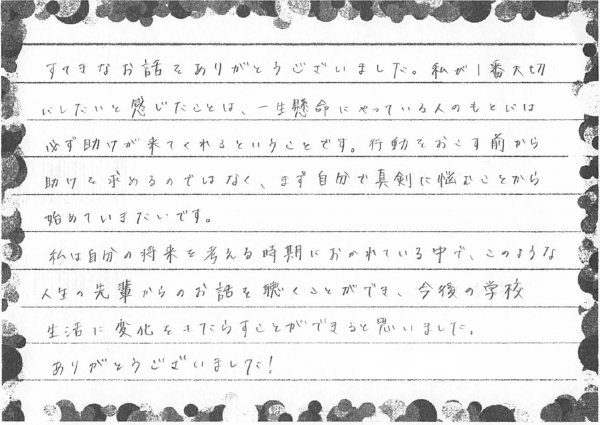 すてきなお話をありがとうございました。私が1番大切
にしたいと感じたことは、一生懸命にやっている人のもとには
必ず助けが来てくれるということです。行動をおこす前から
助けを求めるのではなく、まず自分で真剣に悩むことから
始めていきたいです。
私は自分の将来を考える時期におかれている中で、このような
人生の先輩からのお話を聴くことができ、今後の学校
生活に変化をもたらすことができると思いました。
ありがとうございました!